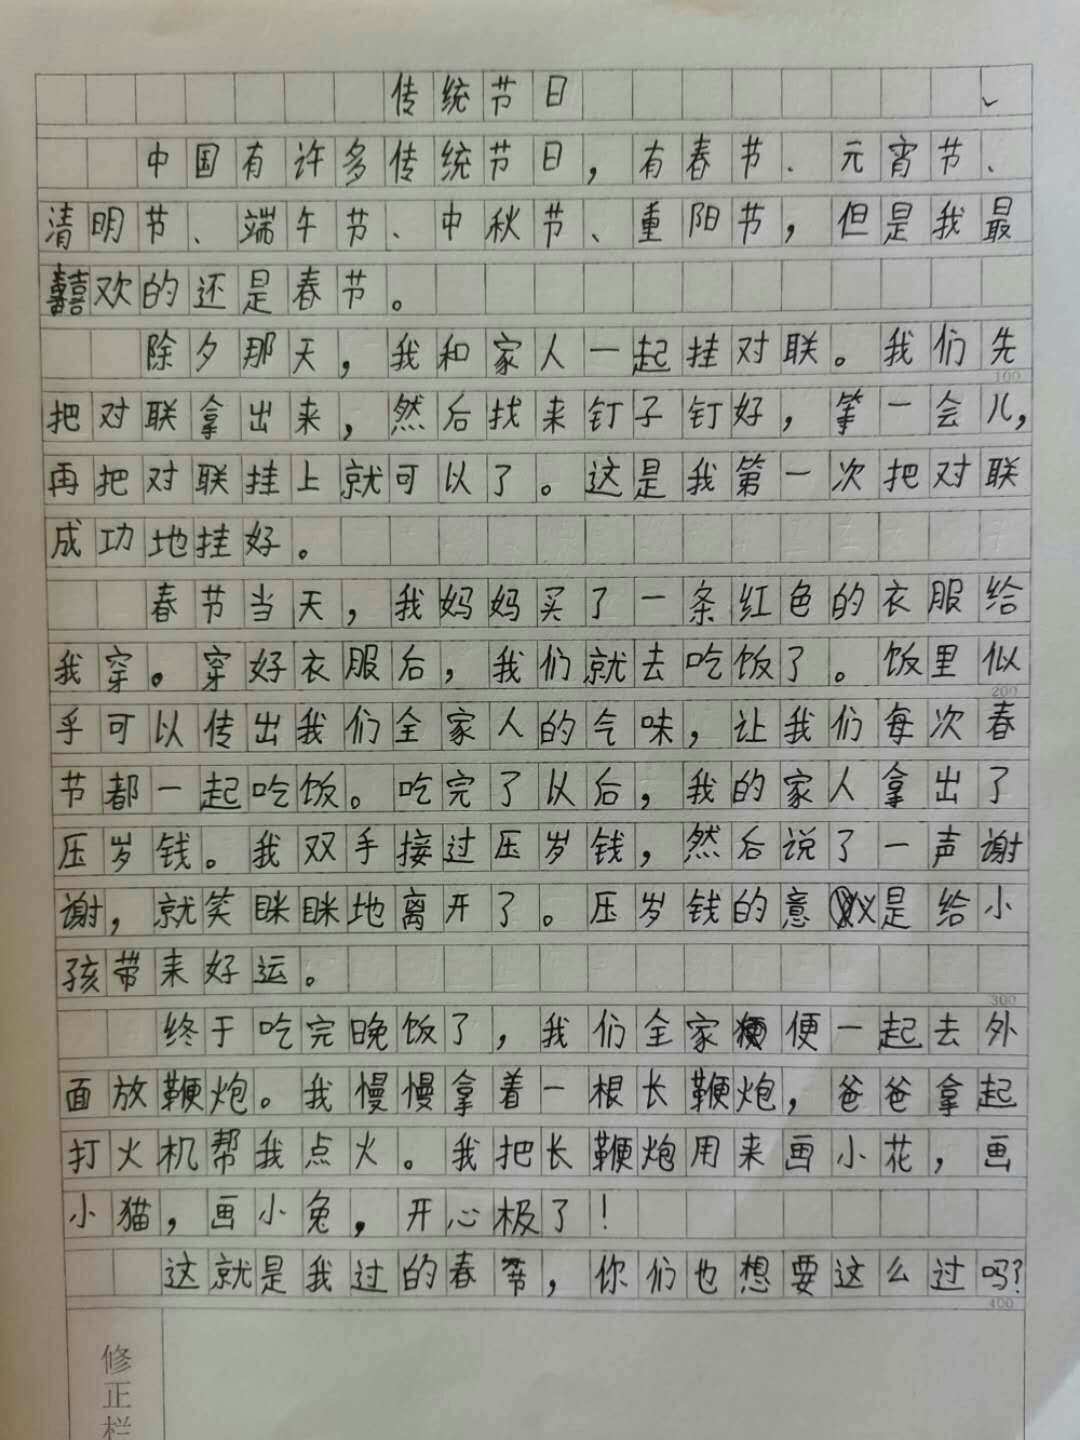 传统节日
中国有许多传统节日，有春节、元宵节、
清明节、端午节、中秋节、重阳节，但是我最
喜欢的还是春节。
除夕那天，我和家人一起挂对联。我们先
100
把对联拿出来，然后找来钉子钉好，等一会儿，
再把对联挂上就可以了。这是我第一次把对联
成功地挂好。
春节当天，我妈妈买了一条红色的衣服给
我穿。穿好衣服后，我们就去吃饭了。饭里似
200
乎可以传出我们全家人的气味，让我们每次春
节都一起吃饭。吃完了以后，我的家人拿出了
压岁钱。我双手接过压岁钱，然后说了一声谢
谢，就笑眯眯地离开了。压岁钱的意义是给小
孩带来好运。
300
终于吃完晚饭了，我们全家便一起去外
面放鞭炮。我慢慢拿着一根长鞭炮，爸爸拿起
打火机帮我点火。我把长鞭炮用来画小花，画
小猫，画小兔，开心极了！
这就是我过的春节，你们也想要这么过吗？
400
修正栏